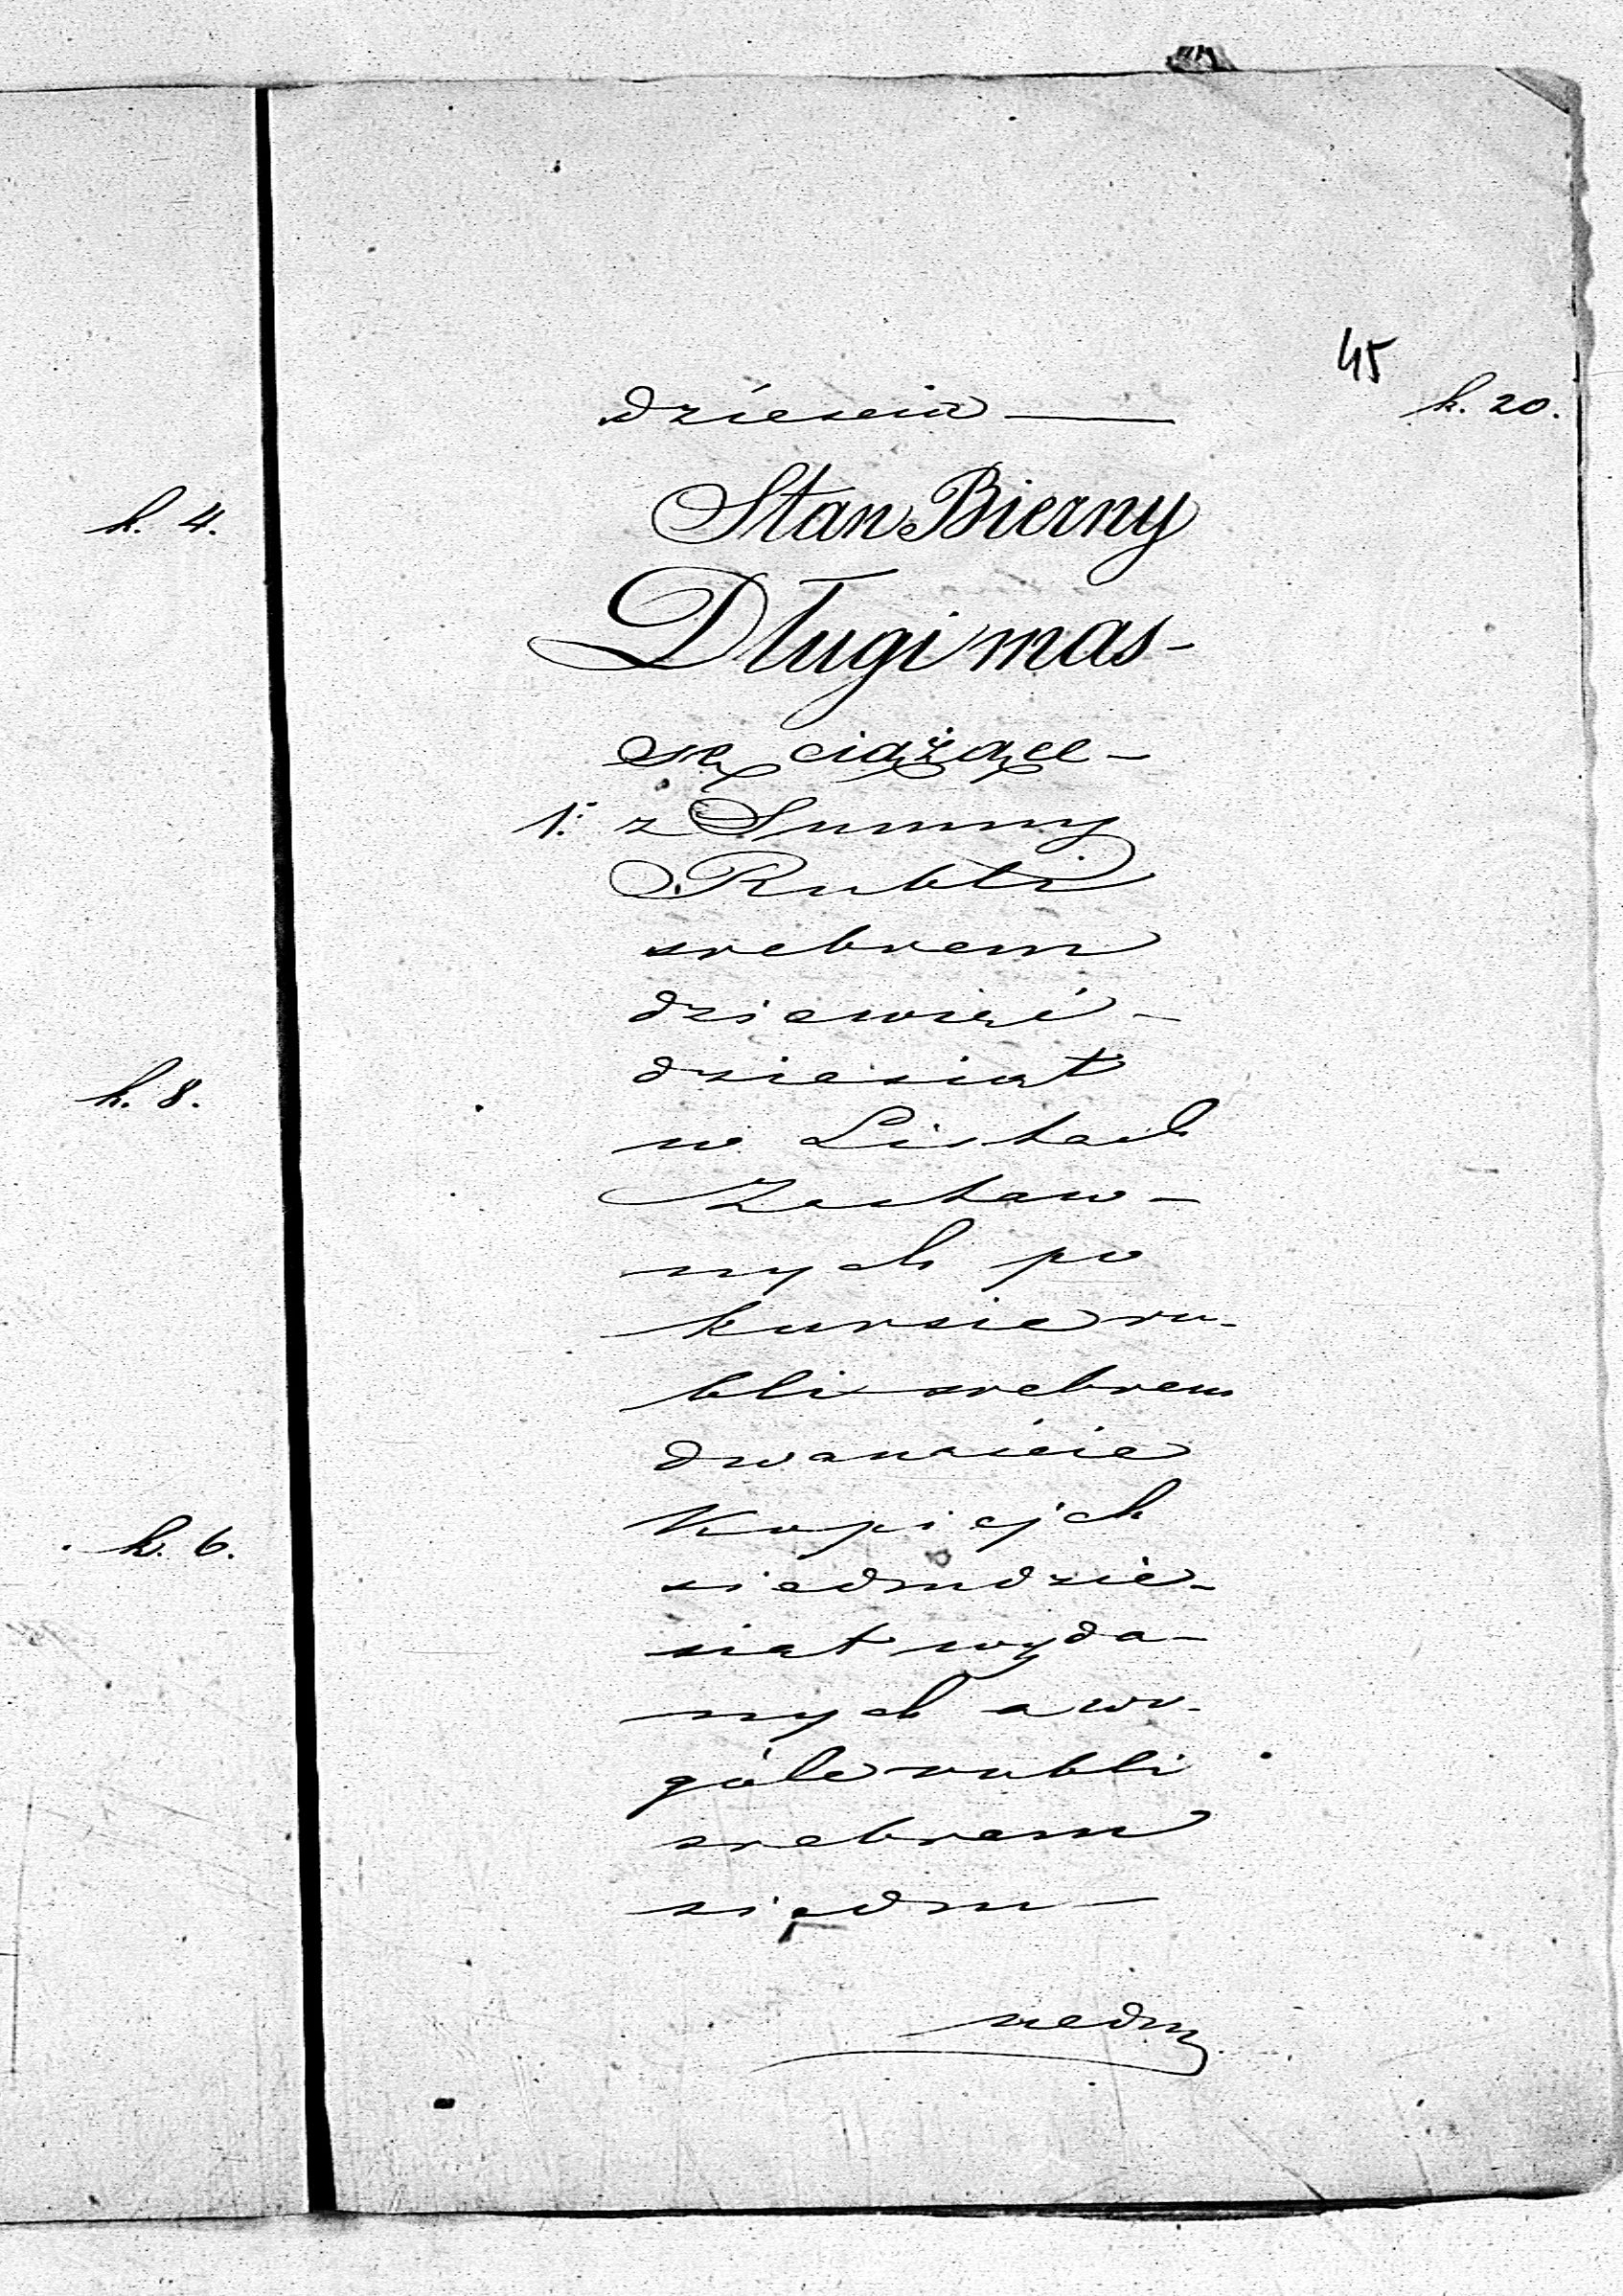 45
dziescia — k. 20.
Stan Bierny
Długi mas-
sę ciążące -
1: z Summy
Rubli
srebrem
dziewięć -
dziesiąt
w Listach
Zastaw -
nych po
kursie ru-
bli srebrem
dwanaście
Kopiejek
siedmdzie-
siąt wyda-
nych a wo-
góle rubli
srebrem
siedm —
siedm
k. 4.
k. 8.
k. 6.